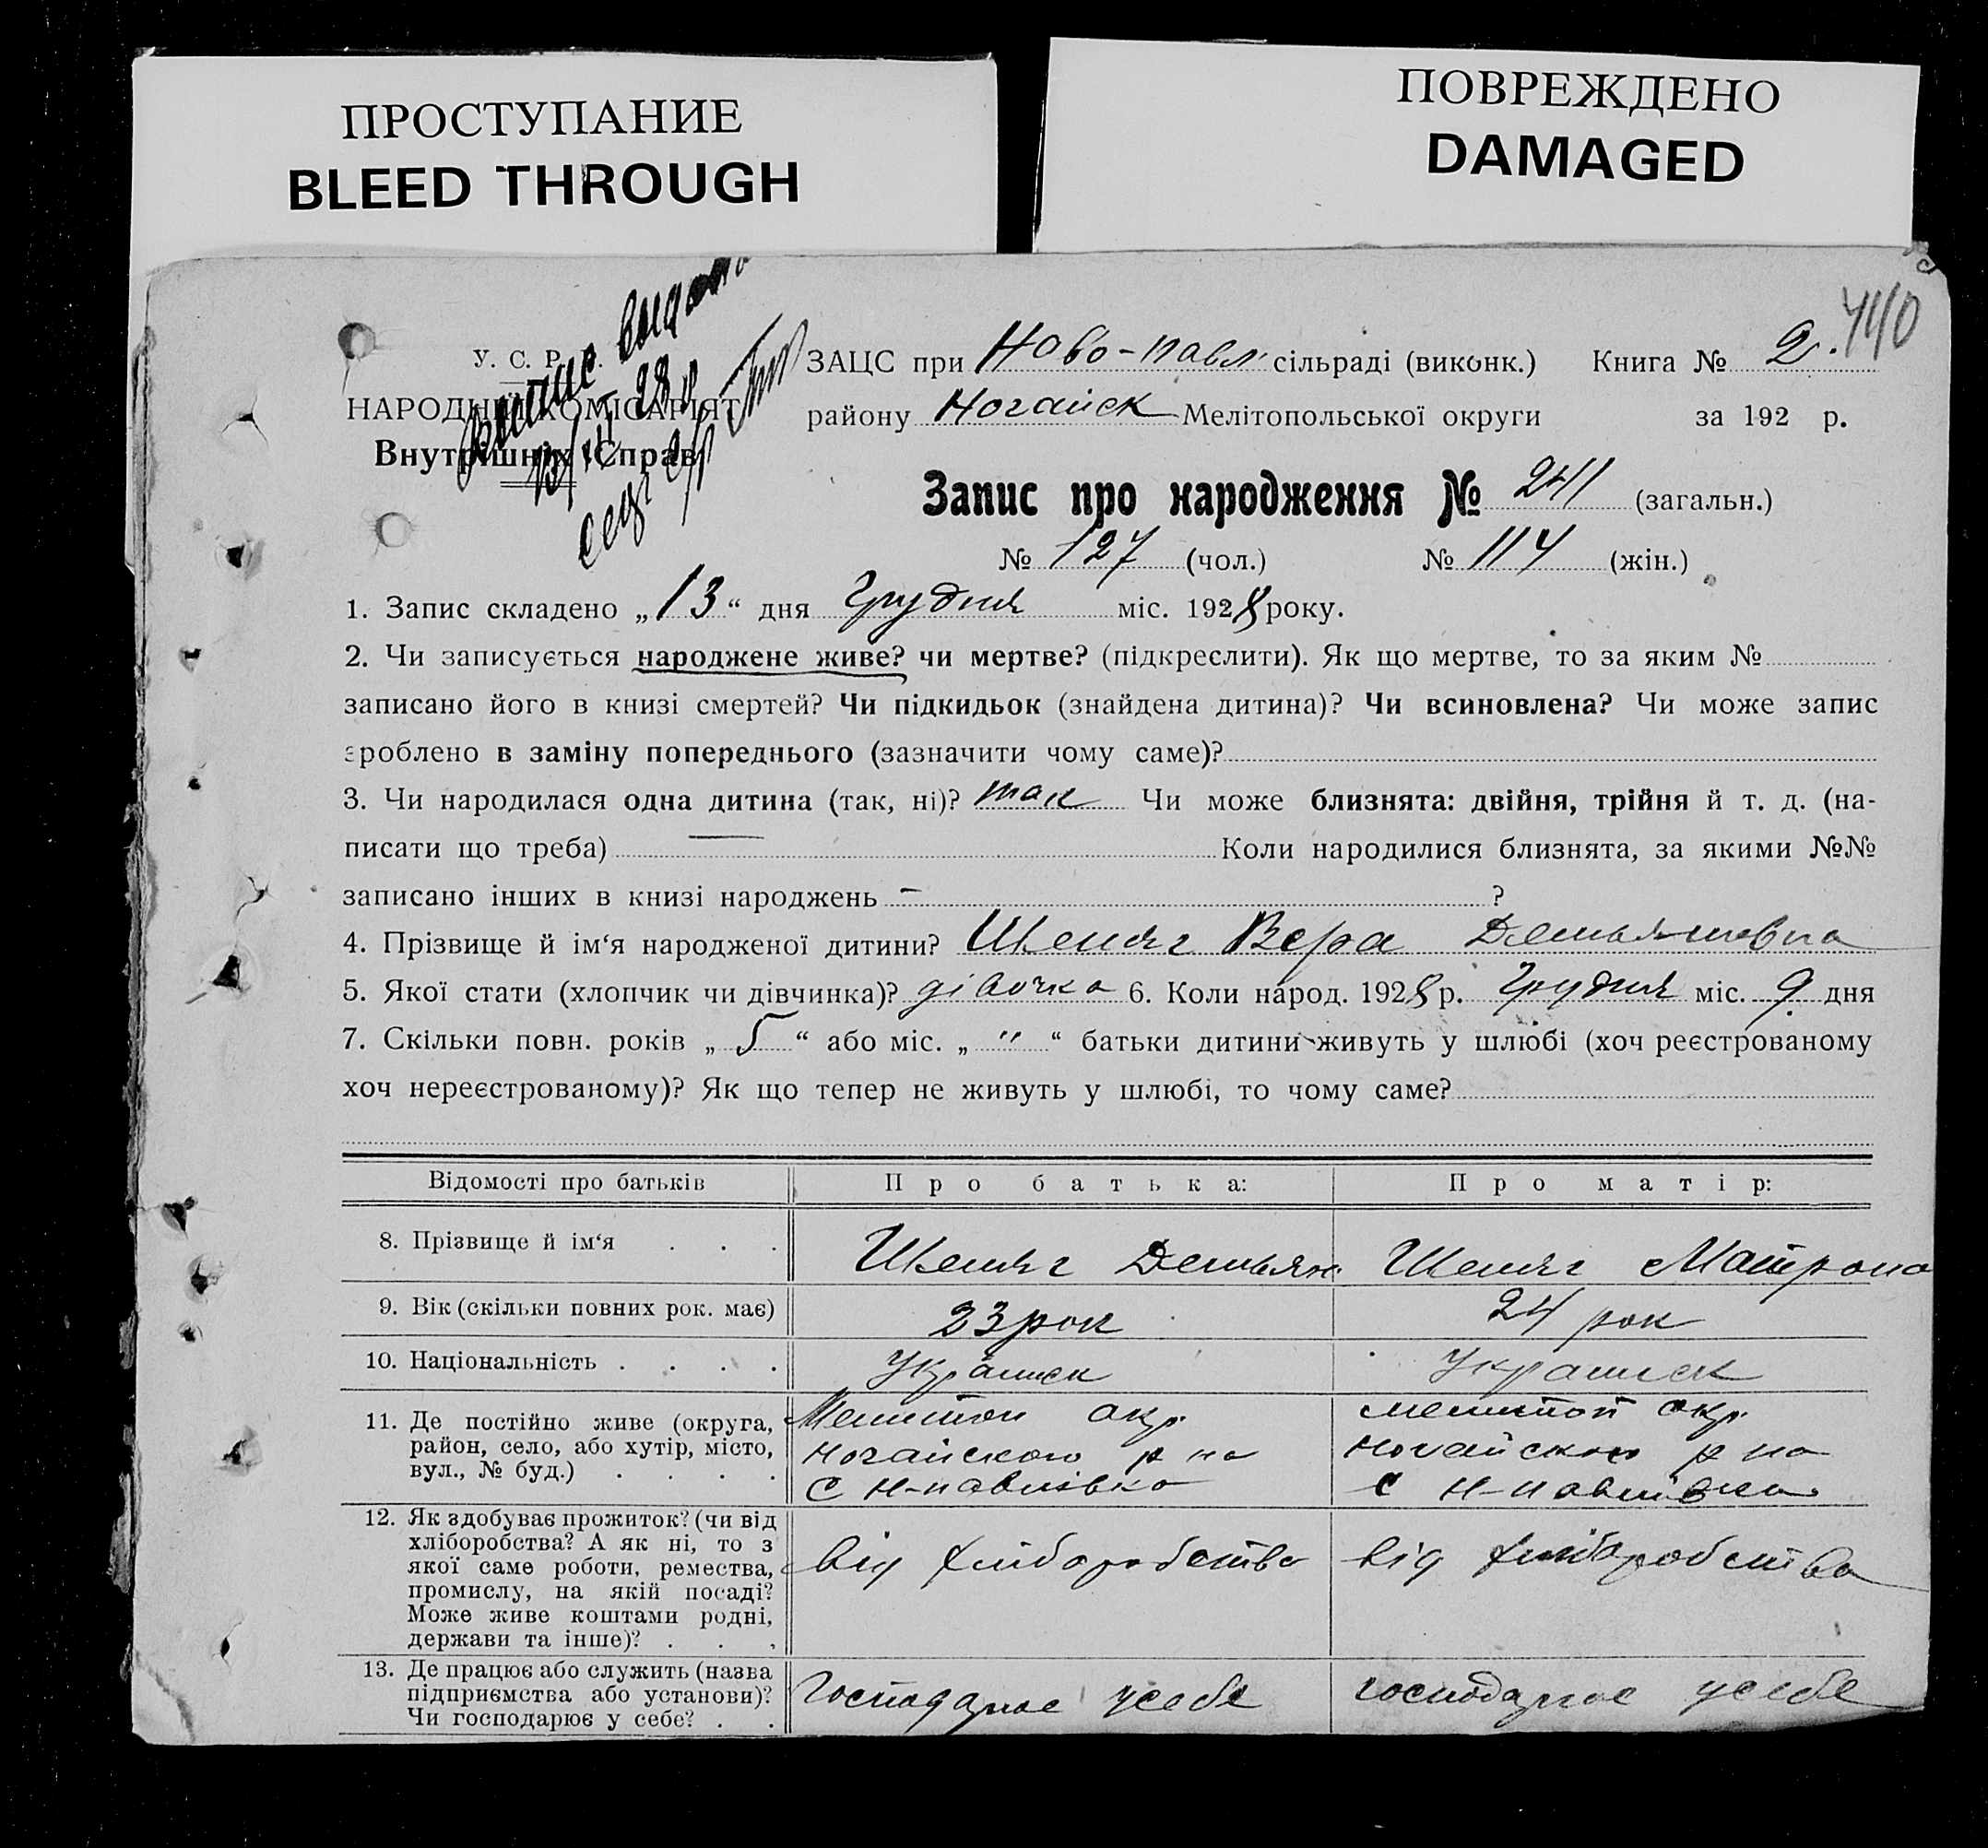 ПРОСТУПАНИЕ
BLEED THROUGH
ПОВРЕЖДЕНО
DAMAGED
440
У. С. Р. Р.
НАРОДНИЙ КОМІСАРІЯТ
Внутрішних Справ
Випис видано
13/XII 28 р
ЗАЦС при Ново-павл сільраді (виконк.) Книга № 2.
району Ногайск Мелітопольської округи за 192 р.
Запис про народження № 241 (загальн.)
№ 127 (чол.) № 114 (жін.)
1. Запис складено „13“ дня Грудня міс. 1928 року.
2. Чи записується народжене живе? чи мертве? (підкреслити). Як що мертве, то за яким №
записано його в книзі смертей? Чи підкидьок (знайдена дитина)? Чи всиновлена? Чи може запис
зроблено в заміну попереднього (зазначити чому саме)?
3. Чи народилася одна дитина (так, ні)? так Чи може близнята: двійня, трійня й т. д. (на-
писати що треба) — Коли народилися близнята, за якими №№
записано інших в книзі народжень - ?
4. Прізвище й ім‘я народженої дитини? Шеляг Вера Демьяновна
5. Якої стати (хлопчик чи дівчинка)? дівочка 6. Коли народ. 1928 р. Грудня міс. 9 дня
7. Скільки повн. років „ 5 “ або міс. „ " “ батьки дитини живуть у шлюбі (хоч реєстрованому
хоч нереєстрованому)? Як що тепер не живуть у шлюбі, то чому саме?
Відомості про батьків Про батька: Про матір:
8. Прізвище й ім‘я . . . Шеляг Демьян Шеляг Матрона
9. Вік (скільки повних рок. має) 23 рок 24 рок
10. Національність . . . . Украинск Украинск
11. Де постійно живе (округа, Мелитоп окр. Мелитоп окр.
район, село, або хутір, місто, Ногайского р на Ногайского р на
вул., № буд.) . . . . С Н-павлівка С Н-павлівка
12. Як здобуває прожиток? (чи від
хліборобства? А як ні, то з
якої саме роботи, ремества, від хліборобства від хліборобства
промислу, на якій посаді?
Може живе коштами родні,
держави та інше)? . . .
13. Де працює або служить (назва
підприємства або установи)? Господарює у себе господарює у себе
Чи господарює у себе? . .